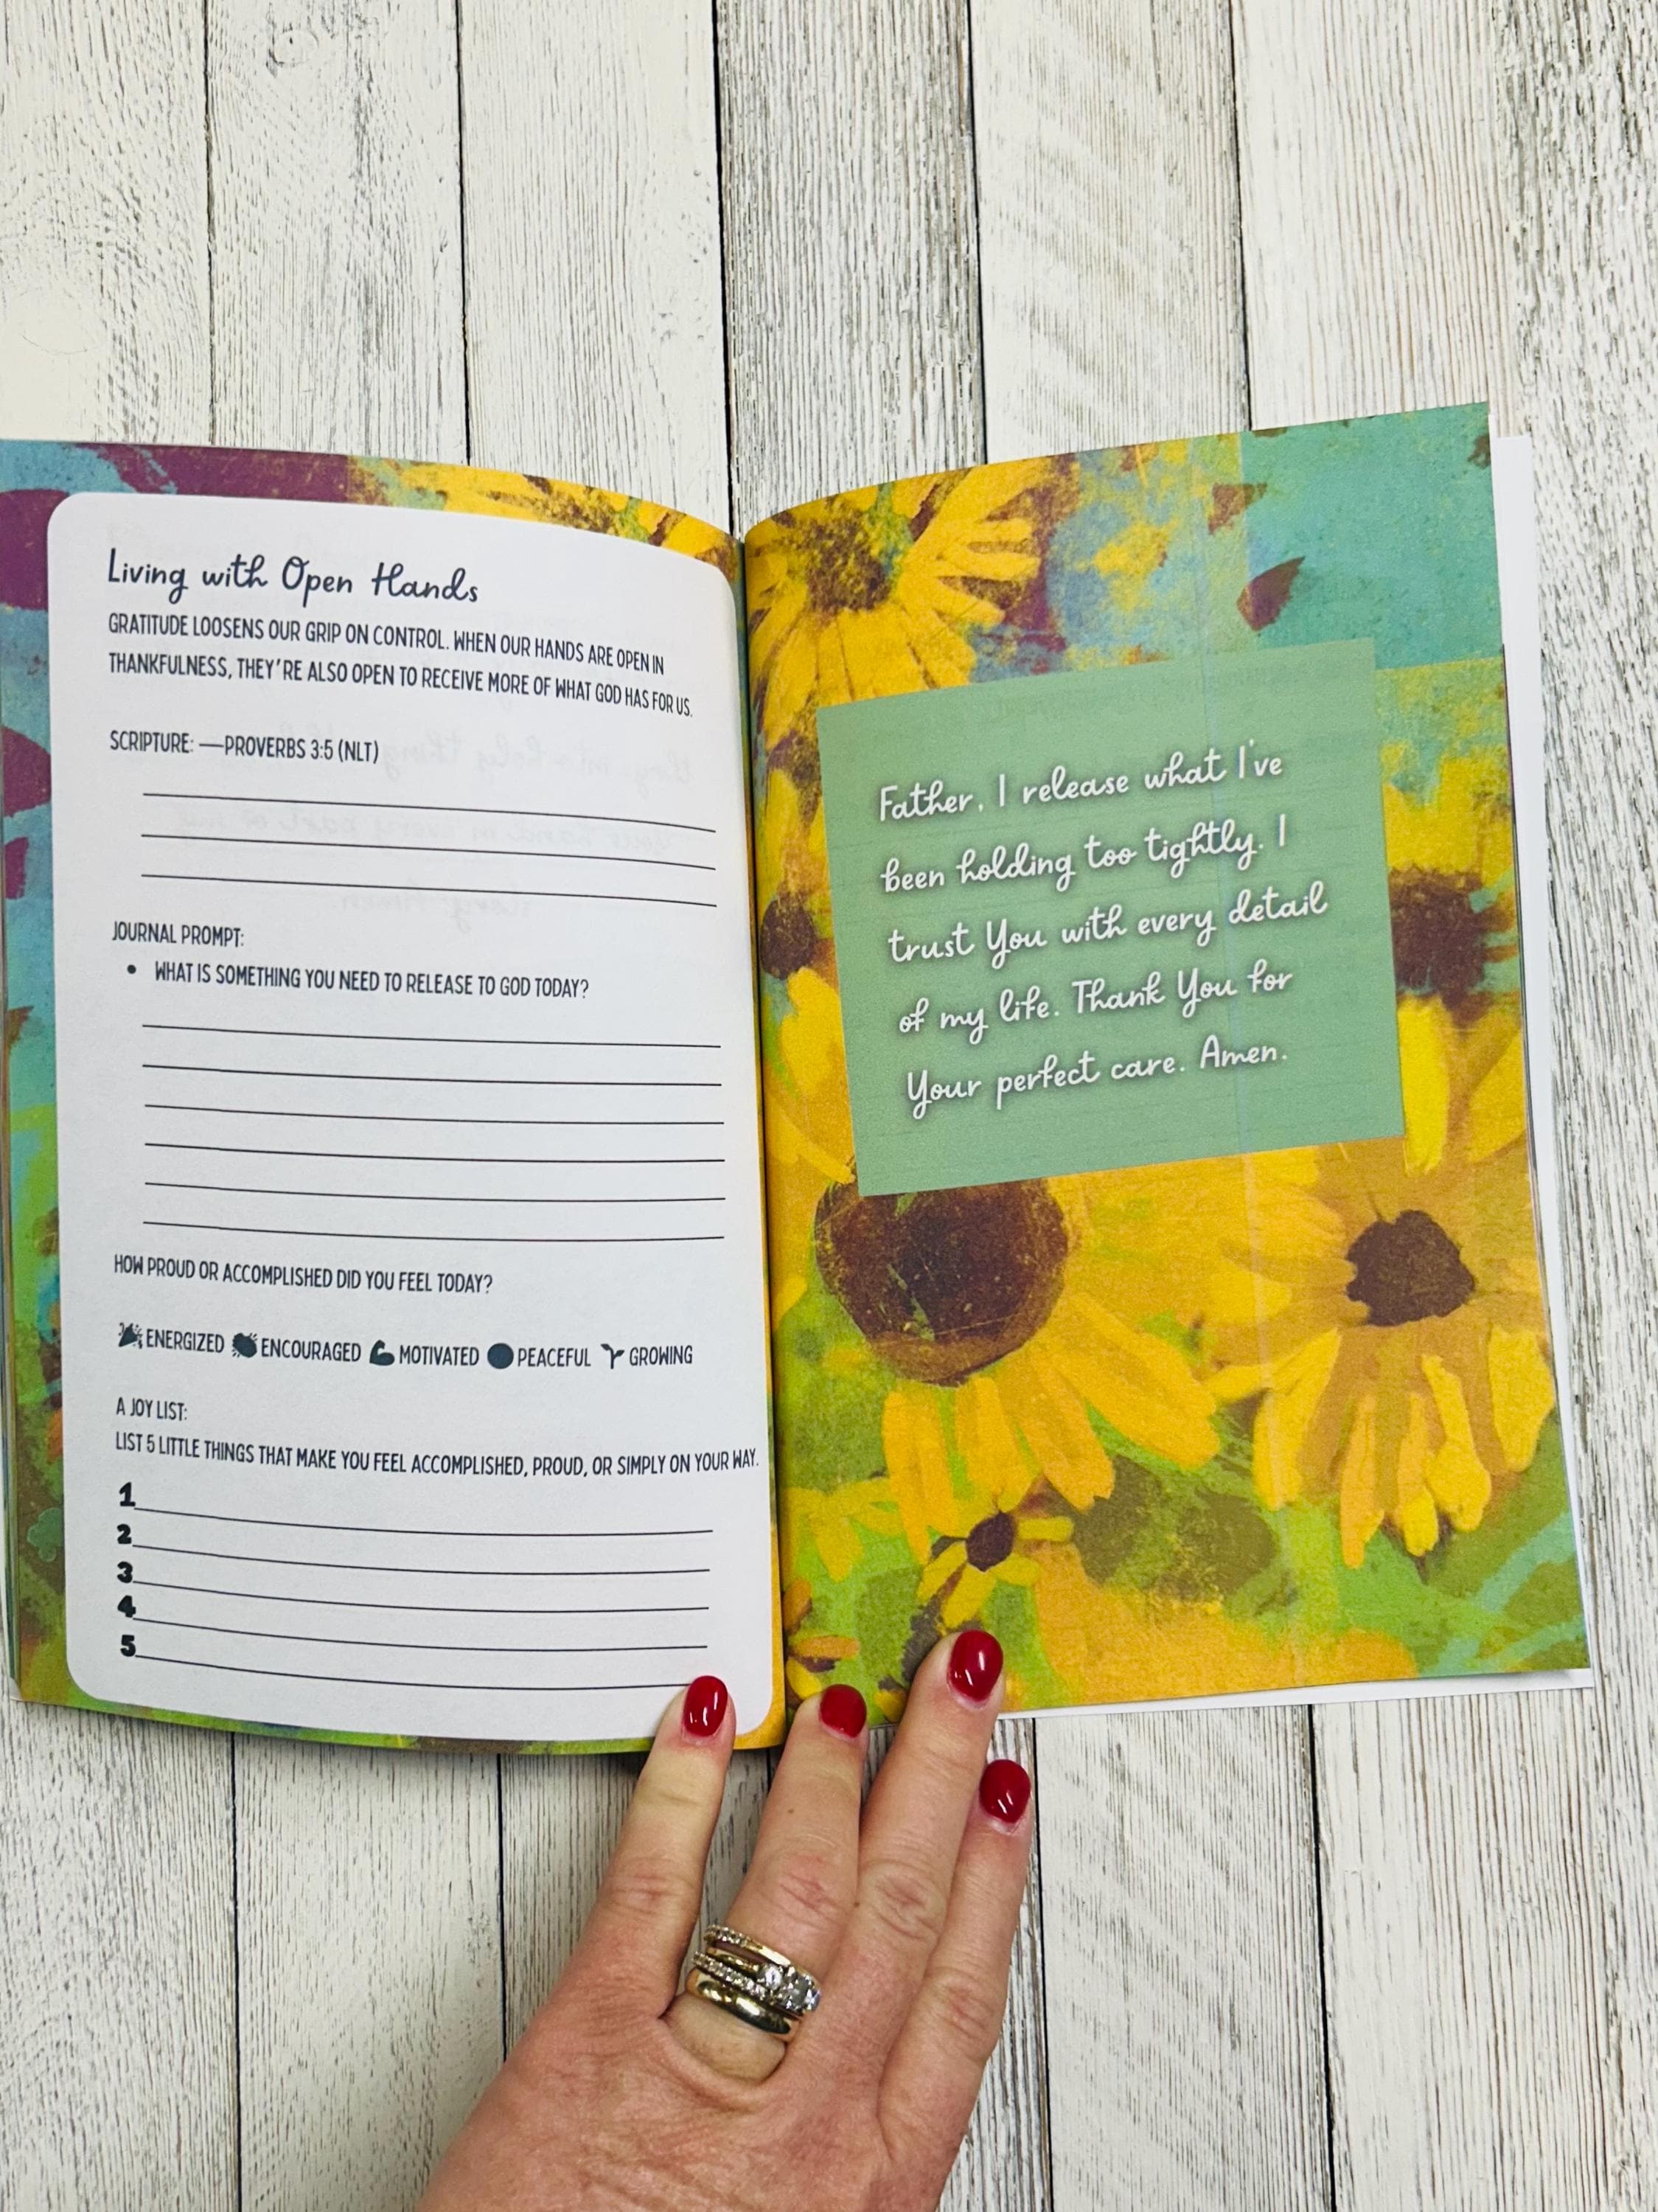 Living with Open Hands
GRATITUDE LOOSENS OUR GRIP ON CONTROL. WHEN OUR HANDS ARE OPEN IN
THANKFULNESS, THEY'RE ALSO OPEN TO RECEIVE MORE OF WHAT GOD HAS FOR US.
SCRIPTURE: —PROVERBS 3:5 (NLT)
JOURNAL PROMPT:
• WHAT IS SOMETHING YOU NEED TO RELEASE TO GOD TODAY?
HOW PROUD OR ACCOMPLISHED DID YOU FEEL TODAY?
ENERGIZED ENCOURAGED MOTIVATED PEACEFUL GROWING
A JOY LIST:
LIST 5 LITTLE THINGS THAT MAKE YOU FEEL ACCOMPLISHED, PROUD, OR SIMPLY ON YOUR WAY.
1
2
3
4
5
Father, I release what I've
been holding too tightly. I
trust You with every detail
of my life. Thank You for
Your perfect care. Amen.